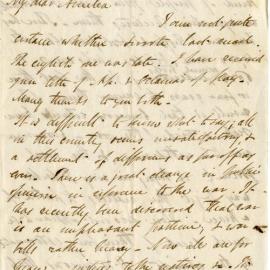 My dear Amelia
I am not quite
certain whether I wrote last mail.
The English one was late. I have received
your letter of Ap. & of May.
Many thanks to you both.
It is difficult to know what to say, all
in this country seems unsatisfactory &
a settlement of differences as far off as
ever. There is a great change in public
opinion in reference to the war. It
has recently been discovered that war
is an unpleasant pastime, & war
bills rather heavy. Now all are for
peace